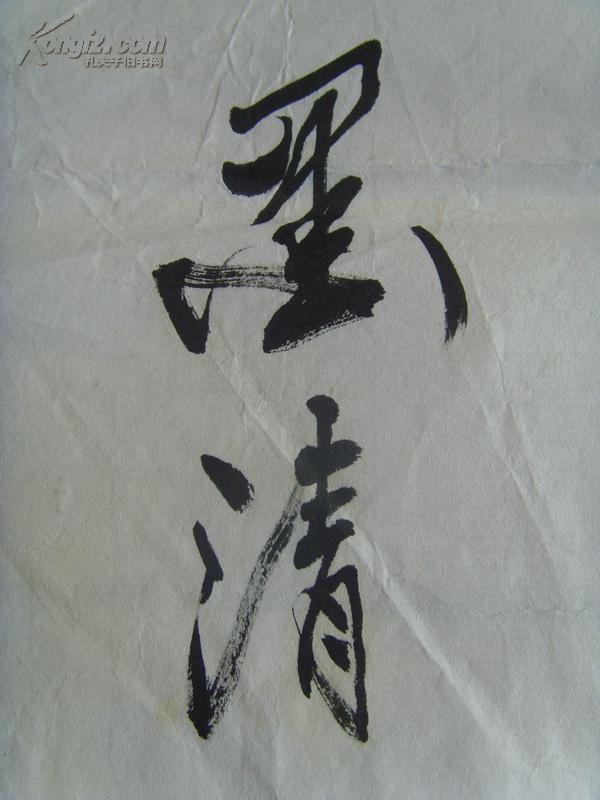 Kongfz.com
孔夫子旧书网
墨
清